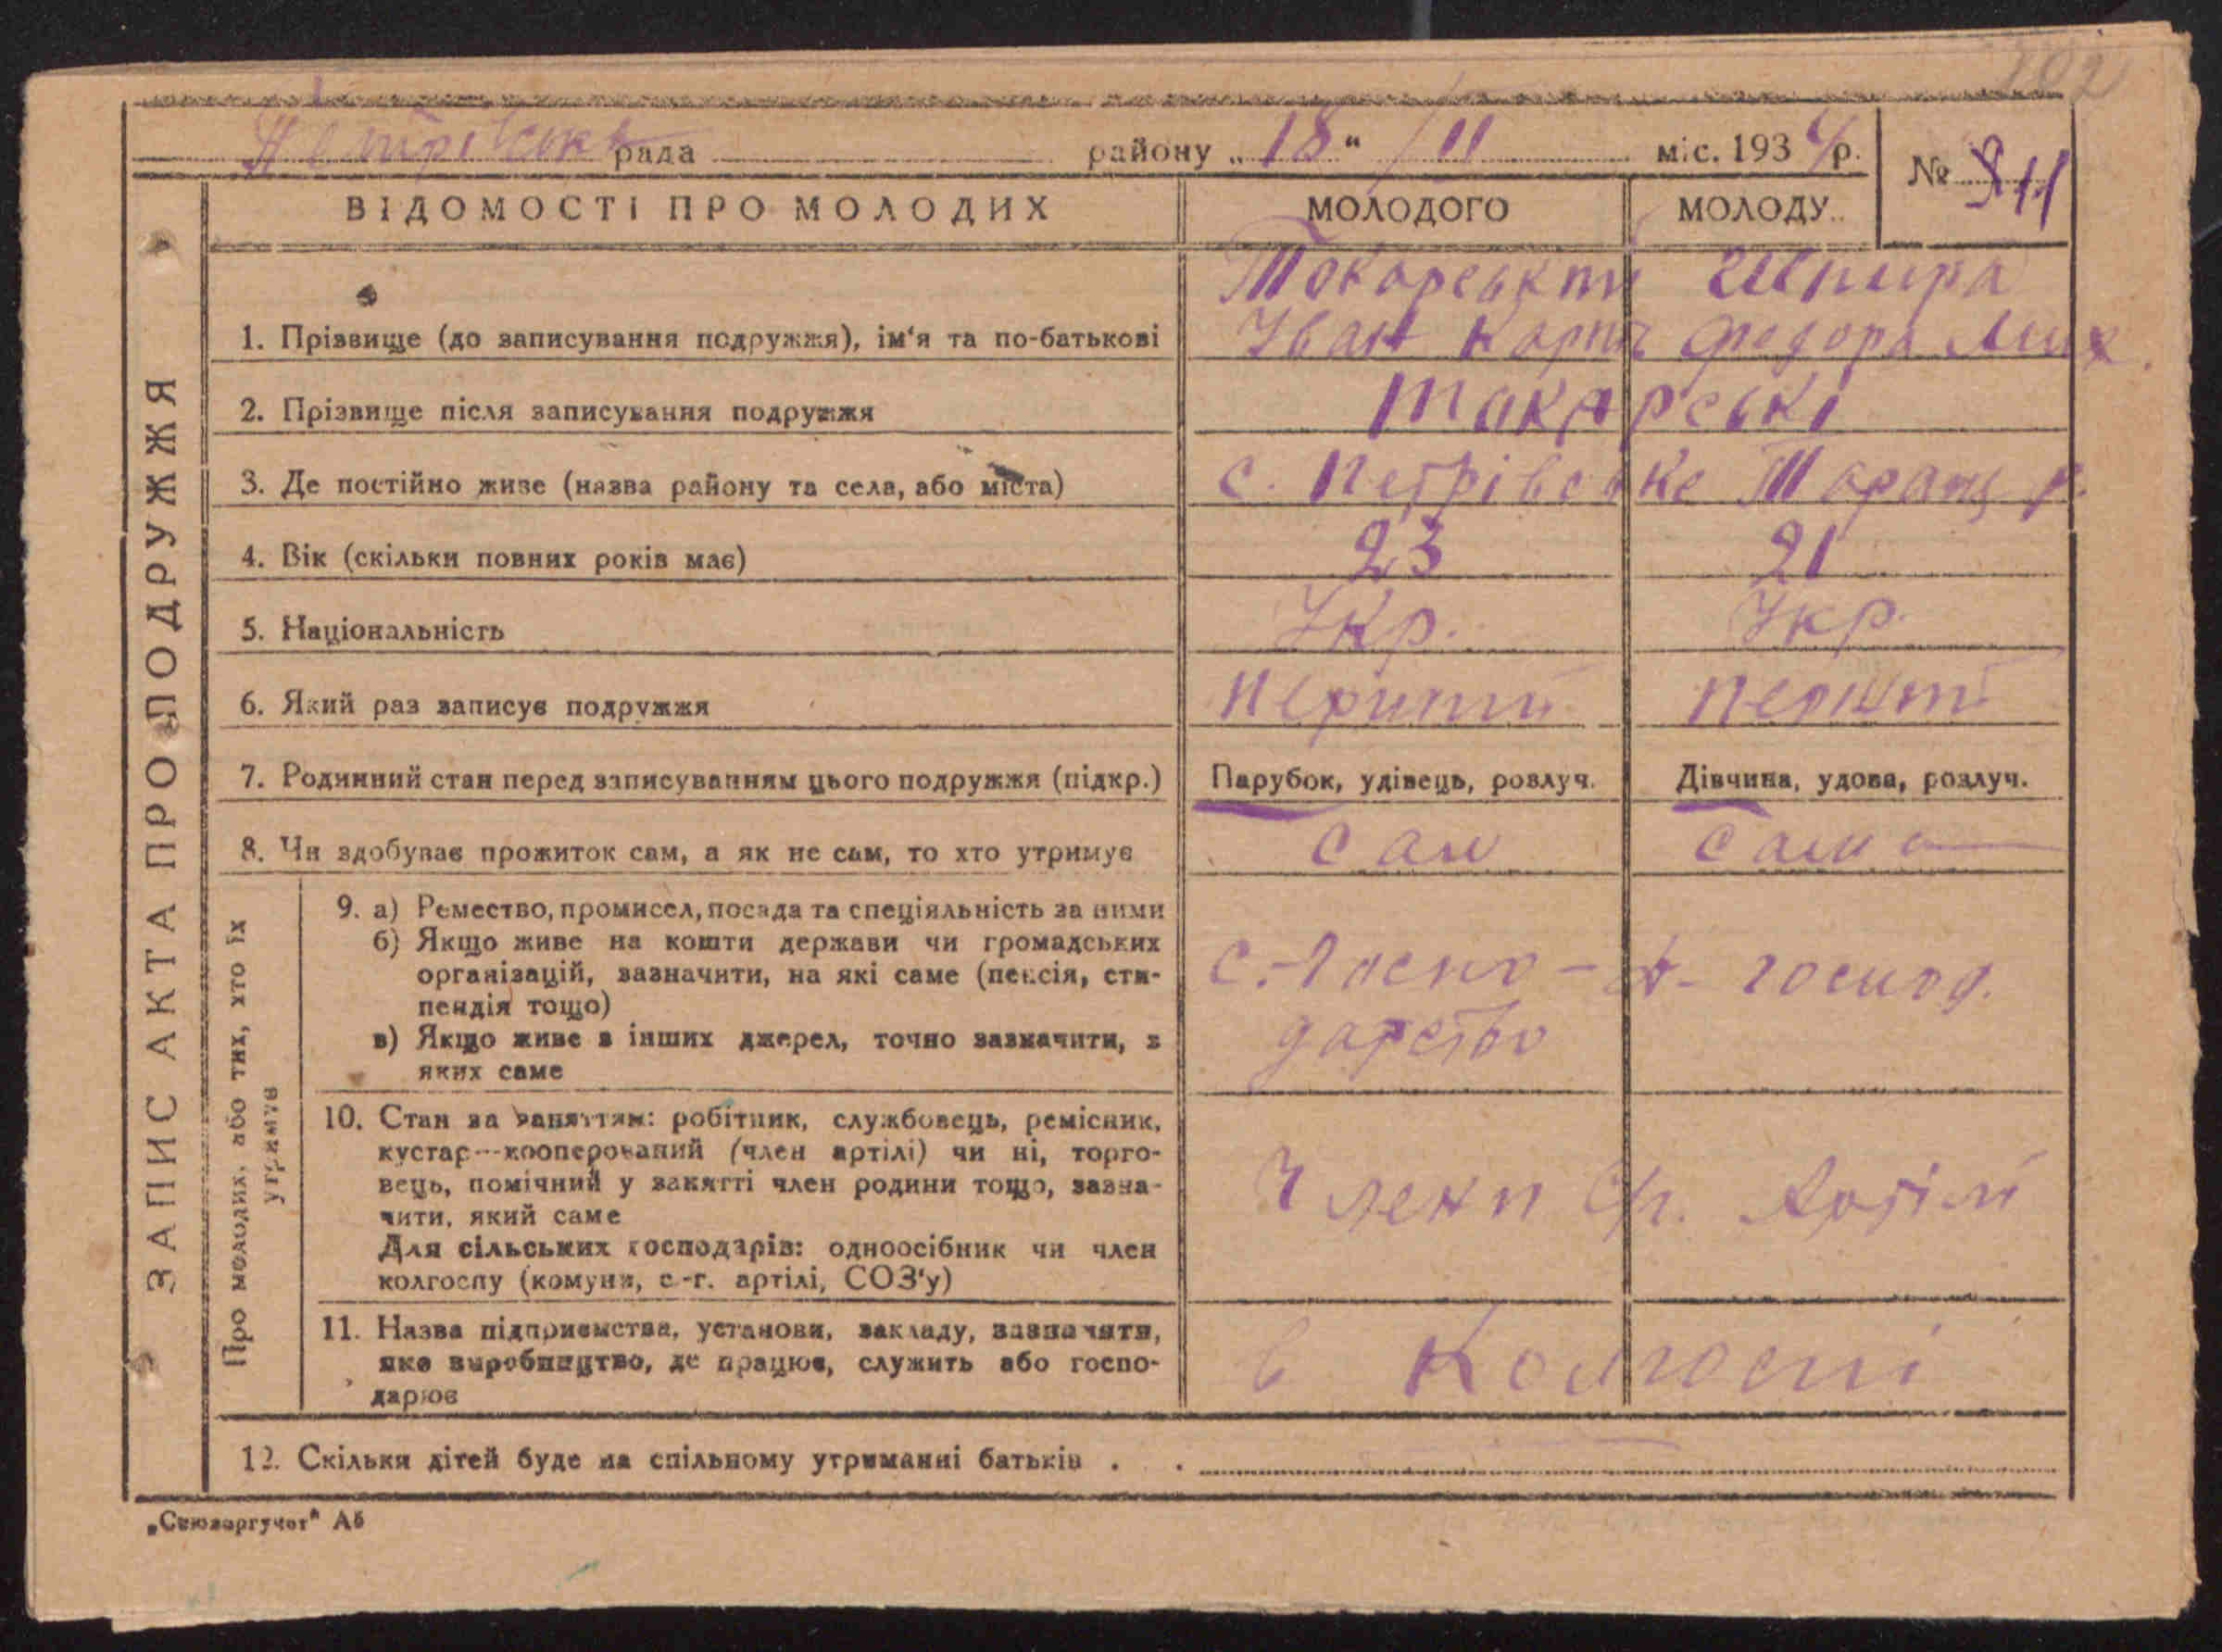 102
Петрівська рада району „18" / 11 міс. 1934 р.
№
ВІДОМОСТІ ПРО МОЛОДИХ МОЛОДОГО МОЛОДУ
Токарський
1. Прізвище (до записування подружжя), ім'я та по-батькові Іван Карп Федора Мих.
2. Прізвище після записування подружжя Такарські
3. Де постійно живе (назва району та села, або міста) с. Петрівське Таращ р.
4. Вік (скільки повних років має) 23 21
5. Національність Укр. Укр.
6. Який раз записує подружжя перший перший
7. Родинний стан перед записуванням цього подружжя (підкр.) Парубок, удівець, розлуч. Дівчина, удова, розлуч.
8. Чи здобуває прожиток сам, а як не сам, то хто утримує сам сама
9. а) Ремество, промисел, посада та спеціяльність за ними
б) Якщо живе на кошти держави чи громадських
організацій, зазначити, на які саме (пенсія, сти-
пендія тощо)
в) Якщо живе з інших джерел, точно зазначити, з
яких саме
с.-госпо-
дарство
господ.
10. Стан за заняттям: робітник, службовець, ремісник,
кустар—кооперований (член артілі) чи ні, торго-
вець, помічний у занятті член родини тощо, зазна-
чити, який саме
Для сільських господарів: одноосібник чи член
колгоспу (комуни, с.-г. артілі, СОЗ'у)
Члени Артілі
11. Назва підприємства, установи, закладу, зазначити,
яке виробництво, де працює, служить або госпо-
дарює
в Колгоспі
12. Скільки дітей буде на спільному утриманні батьків . .
ЗАПИС АКТА ПРО ПОДРУЖЖЯ
Про молодих, або тих, хто їх
утримує
„Союзоргучет" А5